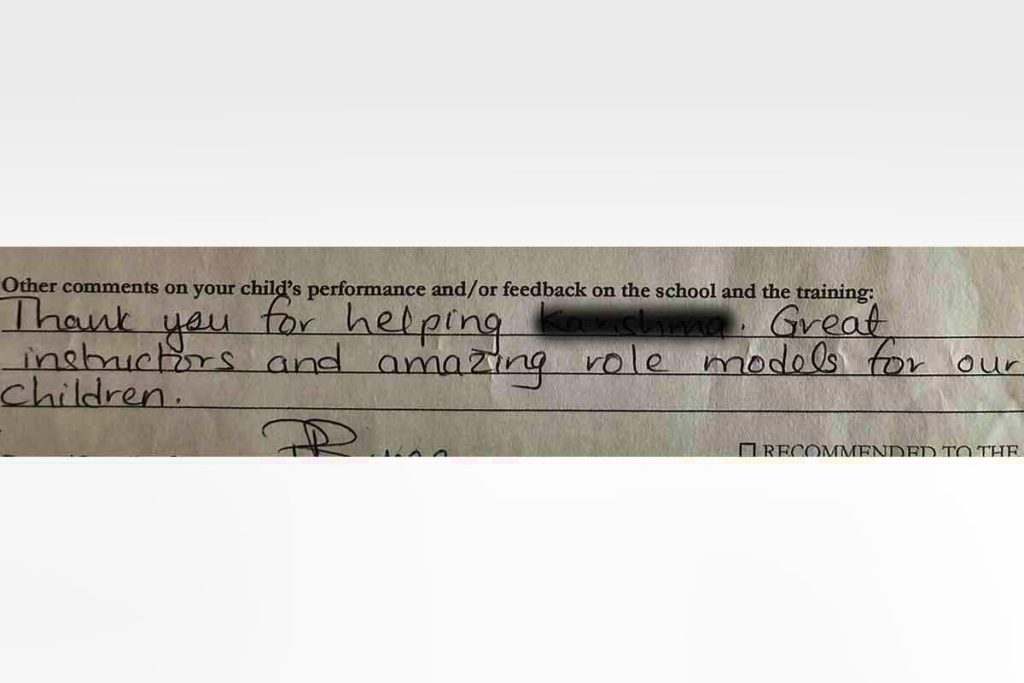 Other comments on your child's performance and/or feedback on the school and the training:
Thank you for helping . Great
instructors and amazing role models for our
children.
RECOMMENDED TO THE